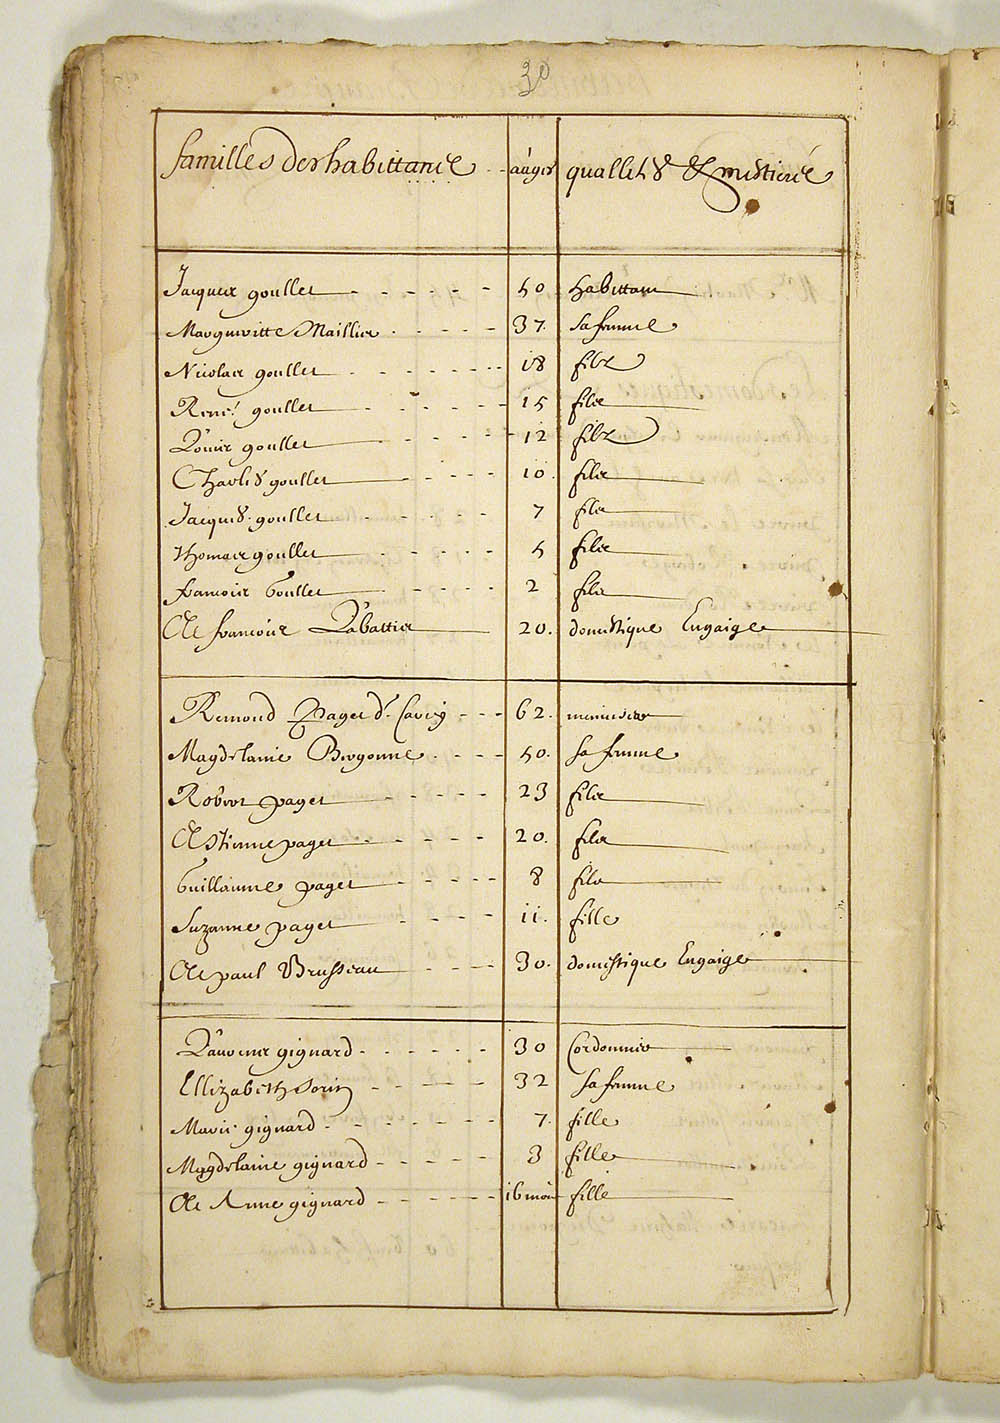 30
familles des habittans aages quallités & mestiers
Jacques goullet 50 habittant
Margueritte Maillier 37. sa femme
Nicolas goullet 18 filz
René goullet 15 filz
Louis goullet 12 filz
Charles goullet 10. filz
Jacques goullet 7 filz
Thomas goullet 5 filz
francois Goullet 2 filz
Et francois Labattier 20. domestique Engaigé
Remond Paget d. Carcy 62. menuisier
Magdelaine Bergonne 50. sa femme
Robert paget 23 filz
Estienne paget 20. filz
Guillaume paget 8 filz
Suzanne paget 11. fille
Et paul Brusseau 30. domestique Engaigé
Laurens gignard 30 Cordonnier
Ellizabeth Sorin 32 sa femme
Marie gignard 7. fille
Magdelaine gignard 3 fille
Et Anne gignard 16 mois fille